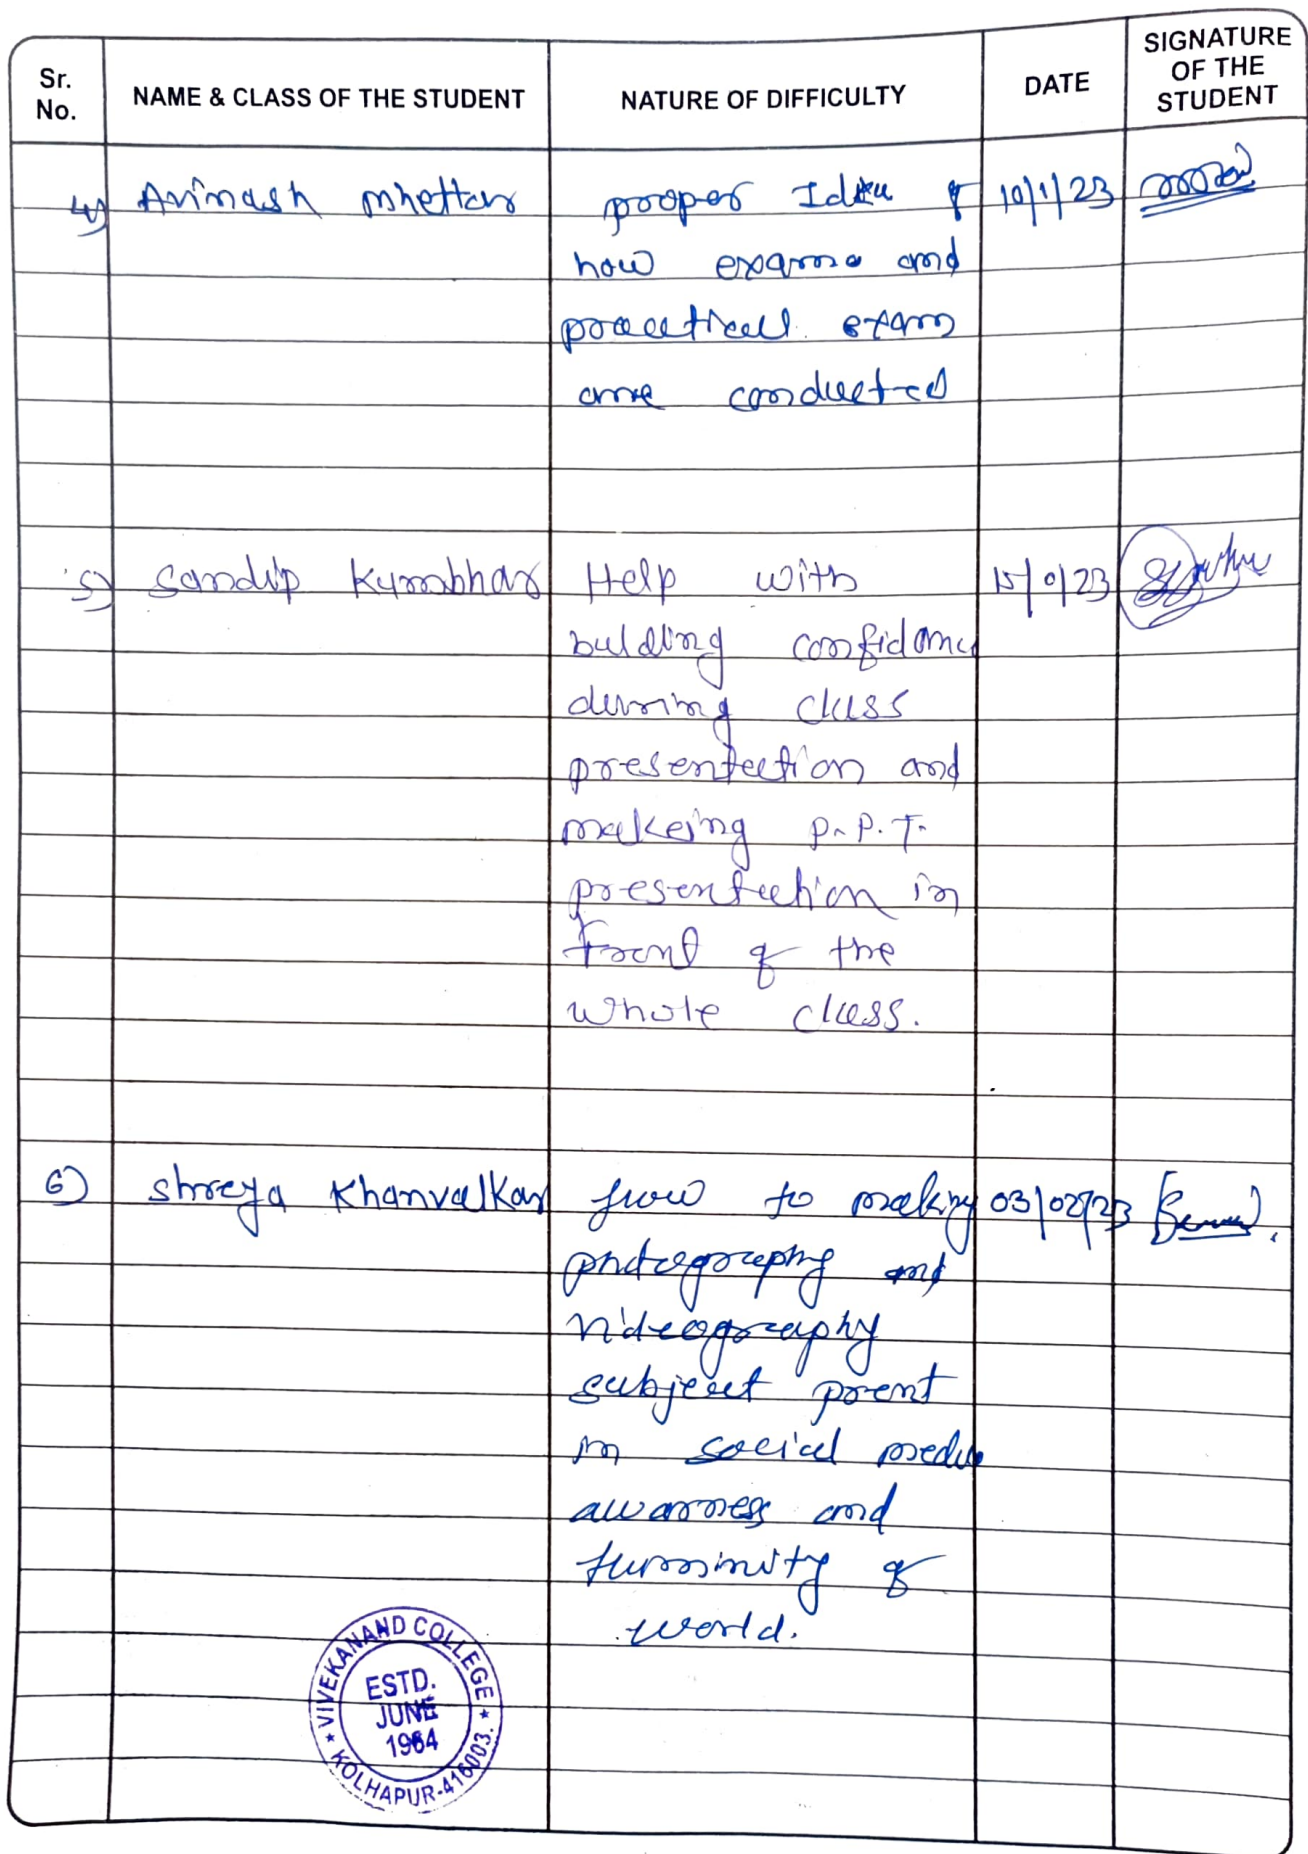 Sr. No.
NAME & CLASS OF THE STUDENT
NATURE OF DIFFICULTY
DATE
SIGNATURE OF THE STUDENT
4) Avinash Mhettar proper Idea of 10/1/23
how exams and
practical exam
are conducted
5) Sandip Kumbhar Help with 15/0/23
bulding confidance
during class
presentation and
makeing P.P.T.
presentation in
front of the
whole class.
6) Shreya Khanvalkar how to making 03/02/23
photography and
videography
subject
in social media
awarness and
huminity of
world.
VIVEKANAND COLLEGE
ESTD.
JUNE
1964
KOLHAPUR-416003.